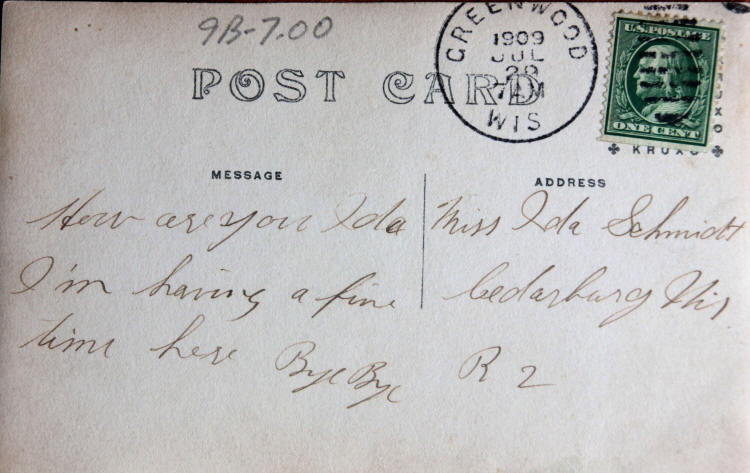 9B-7.00
GREENWOOD
1909
JUL
29
7 AM
WIS
U.S. POSTAGE
ONE CENT
POST CARD
KRUXO
KRUXO
MESSAGE
How are you Ida
I'm having a fine
time here Bye Bye
ADDRESS
Miss Ida Schmidt
Cedarburg Wis
R 2